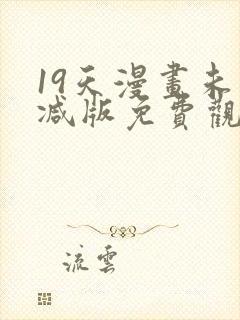 19天漫畫未
减版免費觀
流雲